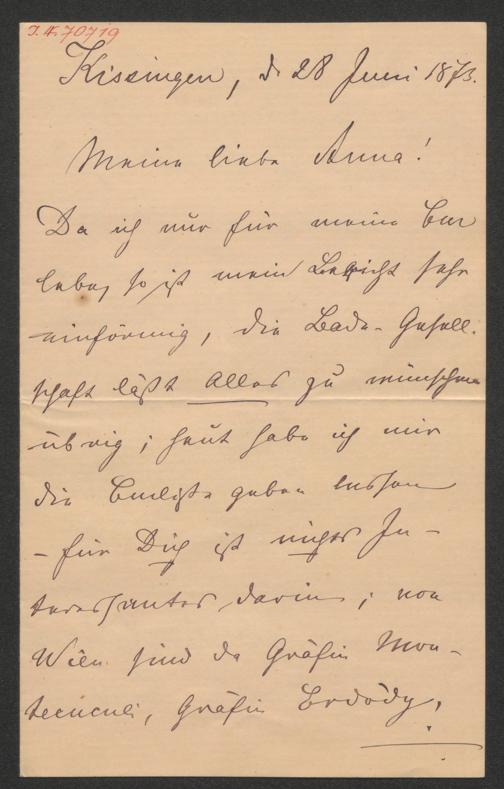 I.N. 70719
Kissingen, d. 28 Juni 1873.
Meine liebe Anna!
Da ich nur für meine Cur
lebe, so ist mein Bericht sehr
einförmig, die Bade-Gesell-
schaft läßt Alles zu wünschen
übrig; heut habe ich mir
die Curliste geben lassen
- für Dich ist nichts In-
teressantes darin; von
Wien sind da Gräfin Mon-
tecuculi, Gräfin Erdödy,